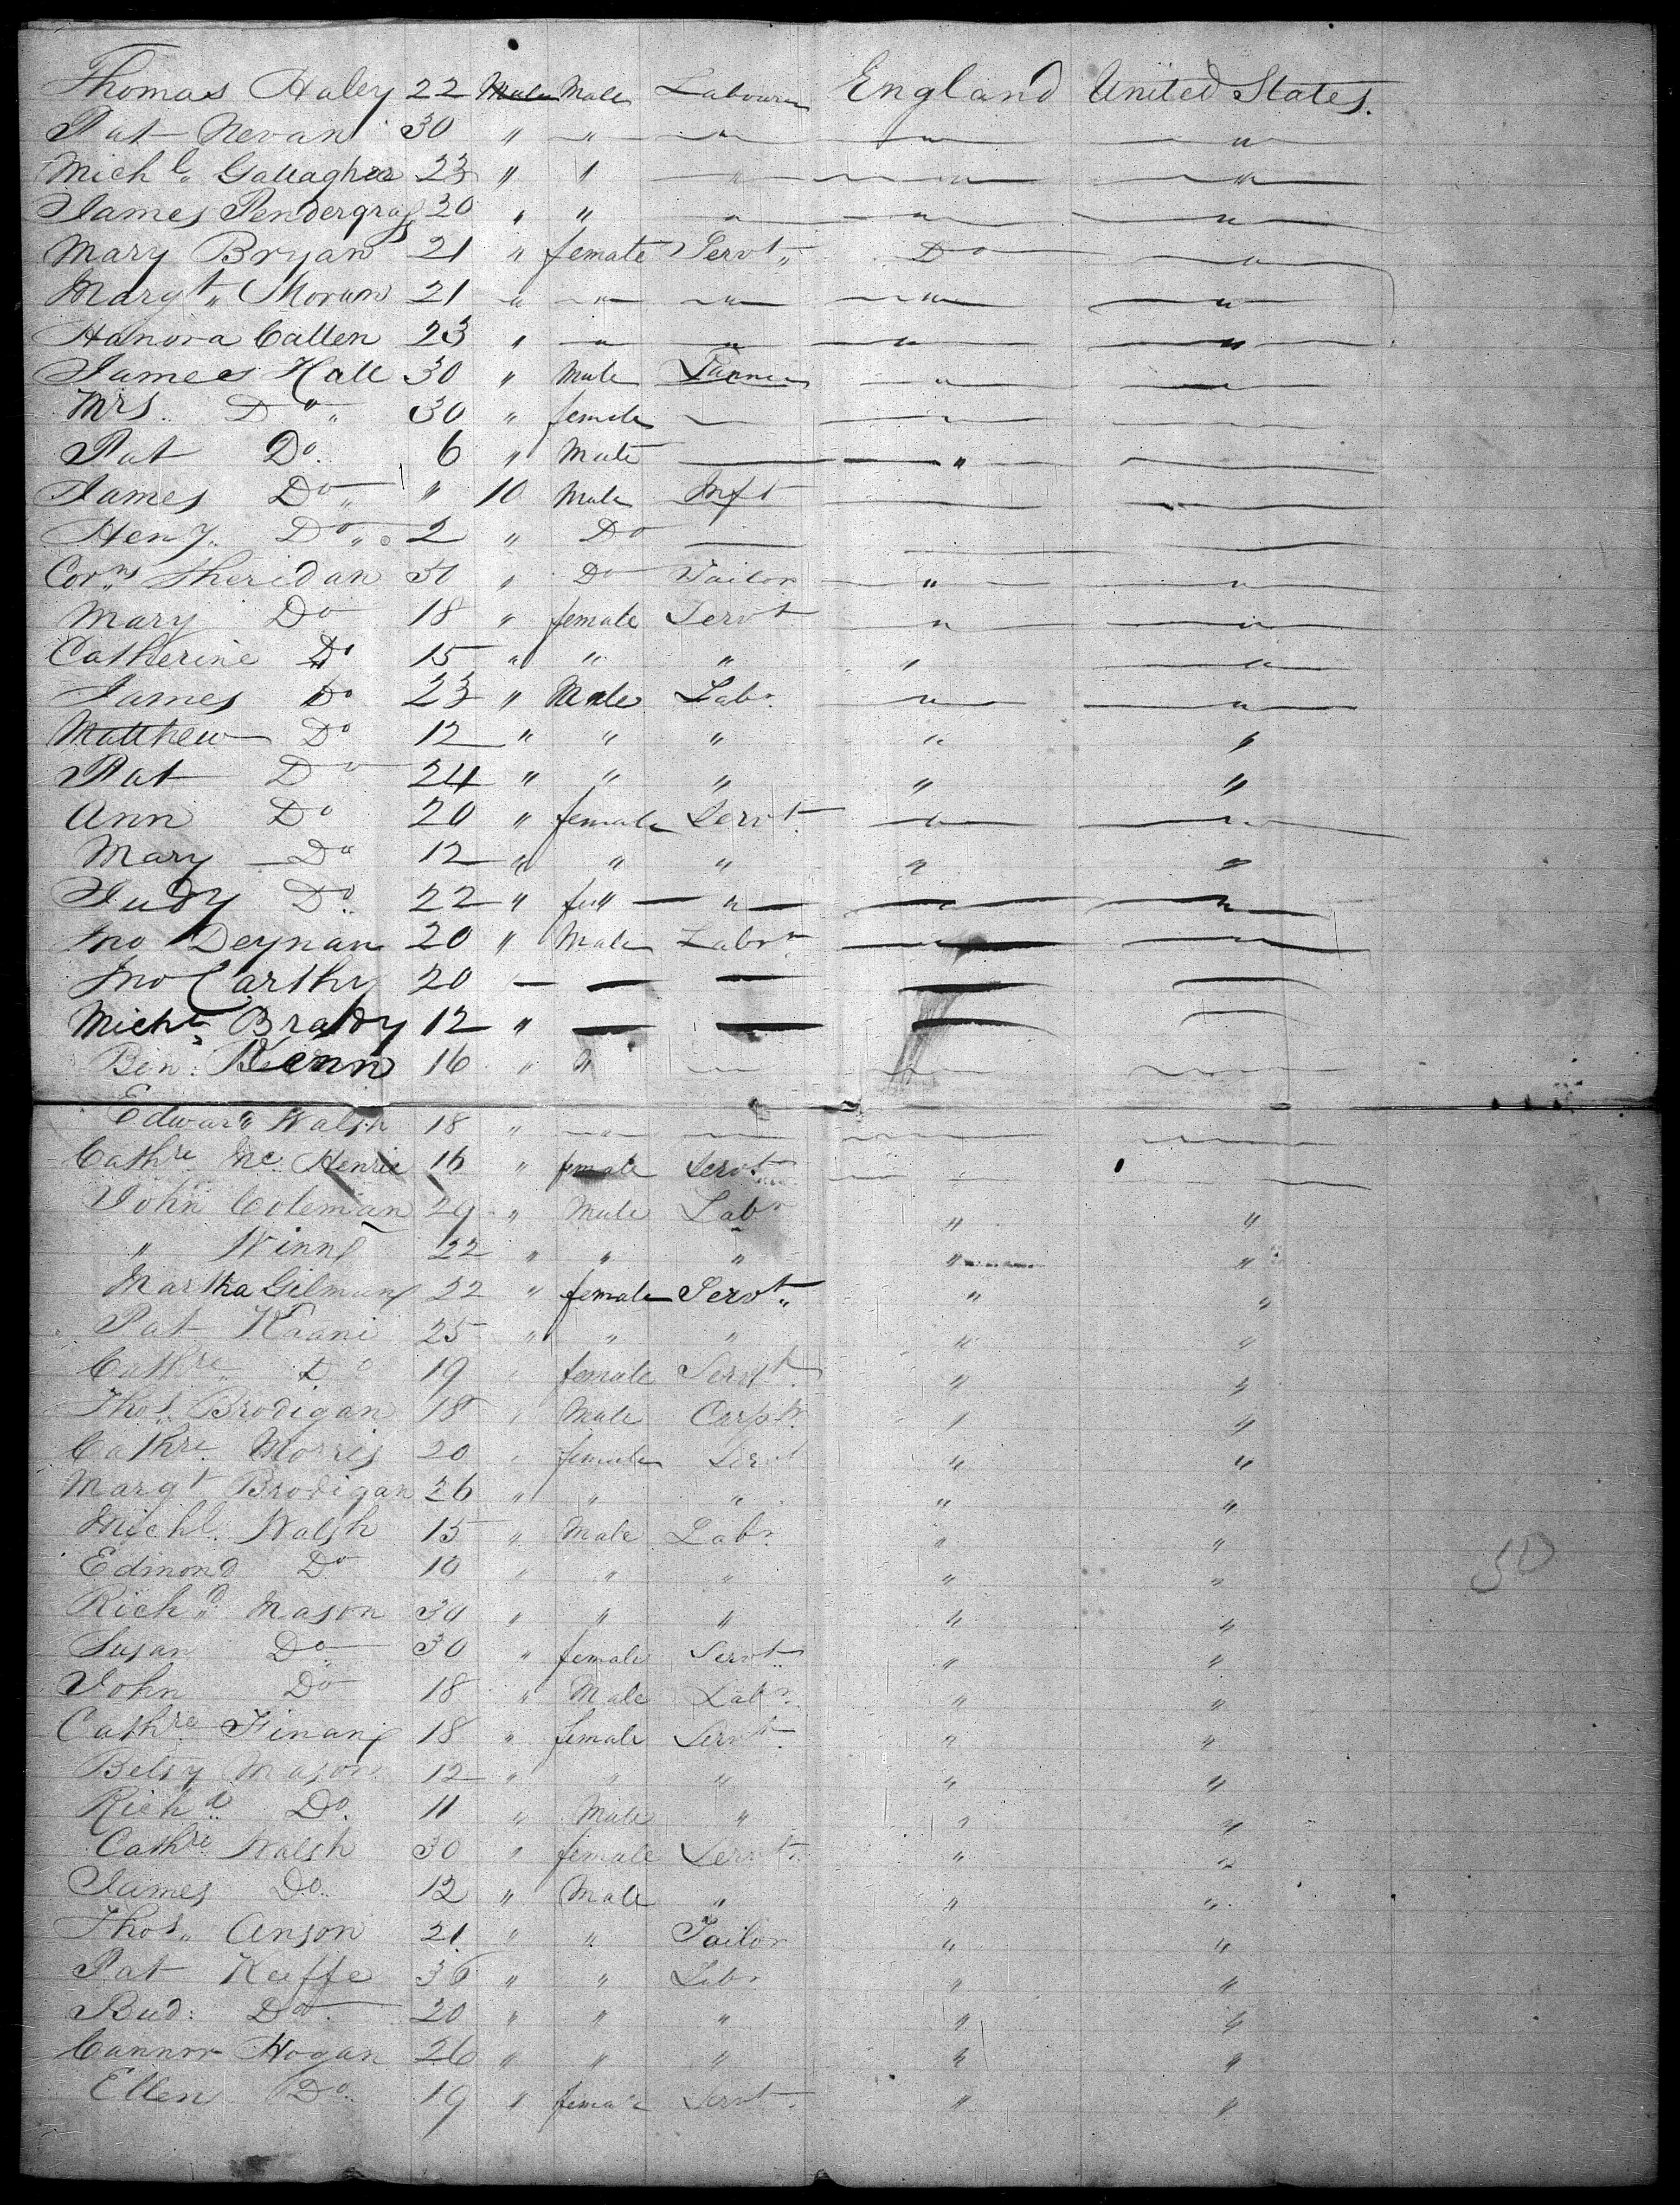 Thomas Haley 22 Male Male Labourer England United States.
Pat Nevan 30 " " " " "
Michl. Gallagher 23 " " " " "
James Pendergrass 20 " " " " "
Mary Bryan 21 " female Servt. Do "
Margt. Moran 21 " " " " "
Hanora Callen 23 " " " " "
James Hall 30 " Male " "
Mrs. Do 30 " female
Pat Do. 6 " Male "
James Do " 10 Male Inft
Heny. Do 2 " Do
Corns. Sheridan 30 " Do Tailor " "
Mary Do 18 " female Servt " "
Catherine Do 15 " " " " "
James Do 23 " Male Labr. " "
Matthew Do 12 " " " " "
Pat Do 24 " " " " "
Ann Do 20 " female Servt. " "
Mary Do 12 " " " " "
Judy Do. 22 " fe" " "
Jno Deynan 20 " Male Labr "
Jno Carthy 20
Michl. Brady 12 "
Ben: Kenn 16 " "
Edward Walsh 18 " "
Cathre Mc Henrie 16 " female Servt.
John Coleman 29 " Male Labr " "
" Winn 22 " " " " "
Martha Gilman 22 " female Servt. " "
Pat Kaani 25 " " " " "
Cathre. Do 19 " female Servt. " "
Thos. Brodigan 18 " Male Carptr. " "
Cathre. Morris 20 " female Servt " "
Margt Brodigan 26 " " " " "
Michl. Walsh 15 " Male Labr. " "
Edmond Do 10 " " " " "
Richd. Mason 30 " " " " "
Susan Do. 30 " female Servt. " "
John Do 18 " Male Labr. " "
Cathre. Finan 18 " female Servt. " "
Betsy Mason 12 " " " " "
Richd. Do. 11 " Male " " "
Cathre. Walsh 30 " female Servt. " "
James Do. 12 " Male " " "
Thos. Anson 21 " " Tailor " "
Pat Keiffe 36 " " Labr " "
Bud: Do. 20 " " " " "
Connor Hogan 26 " " " " "
Ellen Do. 19 " female Servt. " "
50